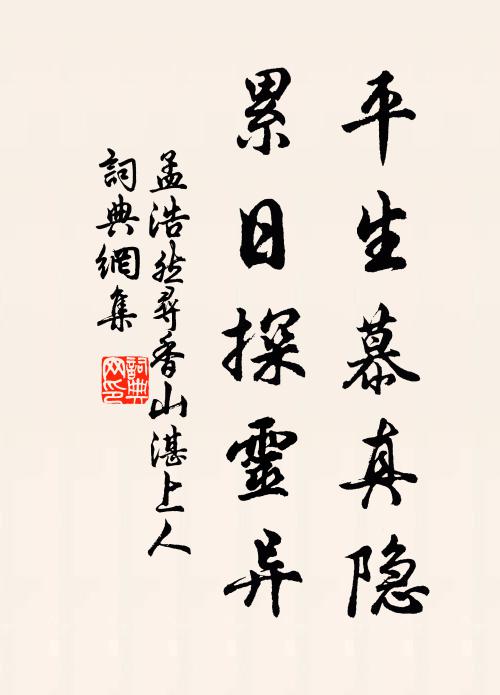 平生慕真隐
累日探靈异
孟浩然尋香山湛上人
詞典網集
詞典网印